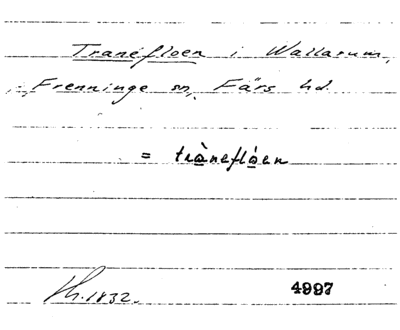 Tranéfloen i Wallarum,
Frenninge sn, Färs hd.
= trànefló̲en
Th. 1832.
4997